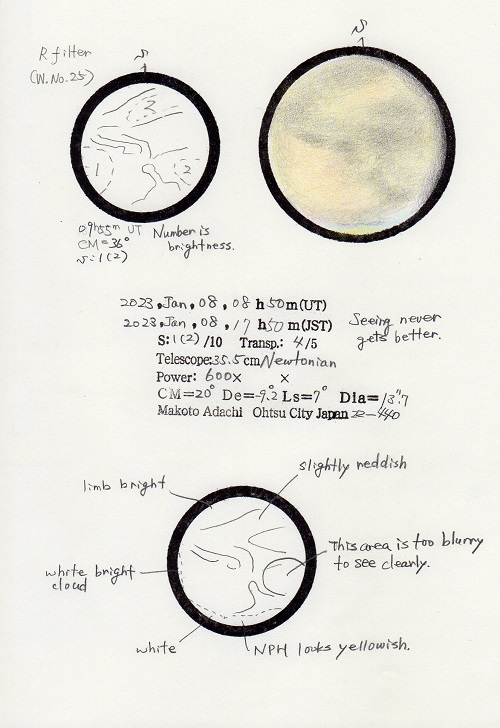 R filter
(W.No.25)
S
S
3
1
2
09h55m UT
CM=36°
S:1(2)
Number is
brightness.
2023, Jan, 08, 08 h 50 m (UT)
2023, Jan, 08, 17 h 50 m (JST)
S: 1(2) /10 Transp.: 4/5
Telescope: 35.5 cm Newtonian
Power: 600× ×
CM=20° De=-9.2 Ls=7° Dia=13".7
Makoto Adachi Ohtsu City Japan
Seeing never
gets better.
slightly reddish
limb bright
This area is too blurry
to see clearly.
white bright
cloud
white
NPH looks yellowish.